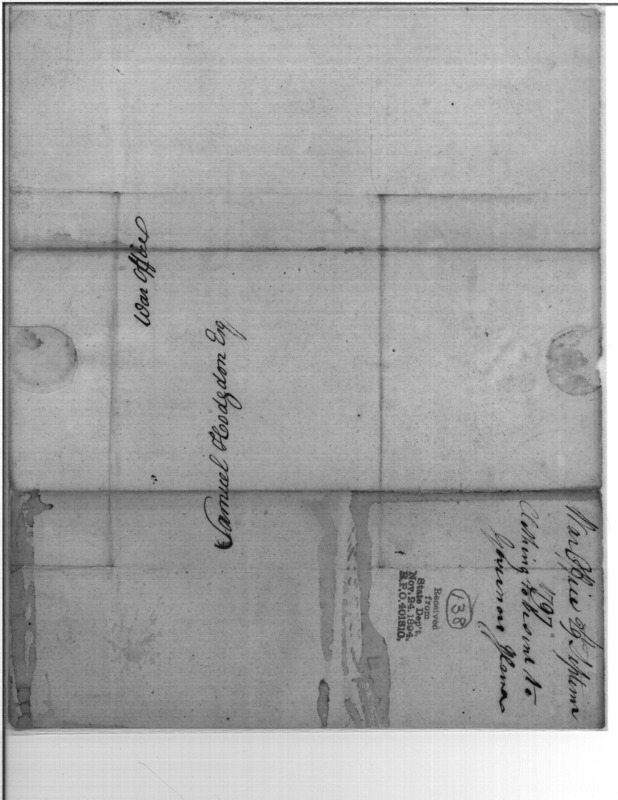 War Office
Samuel Hodgdon Esq
War Office
1797
Clothing to be sent to
Governour
138
Received
from
State Dep't,
Nov. 24, 1894.
R.P.O. 401810.